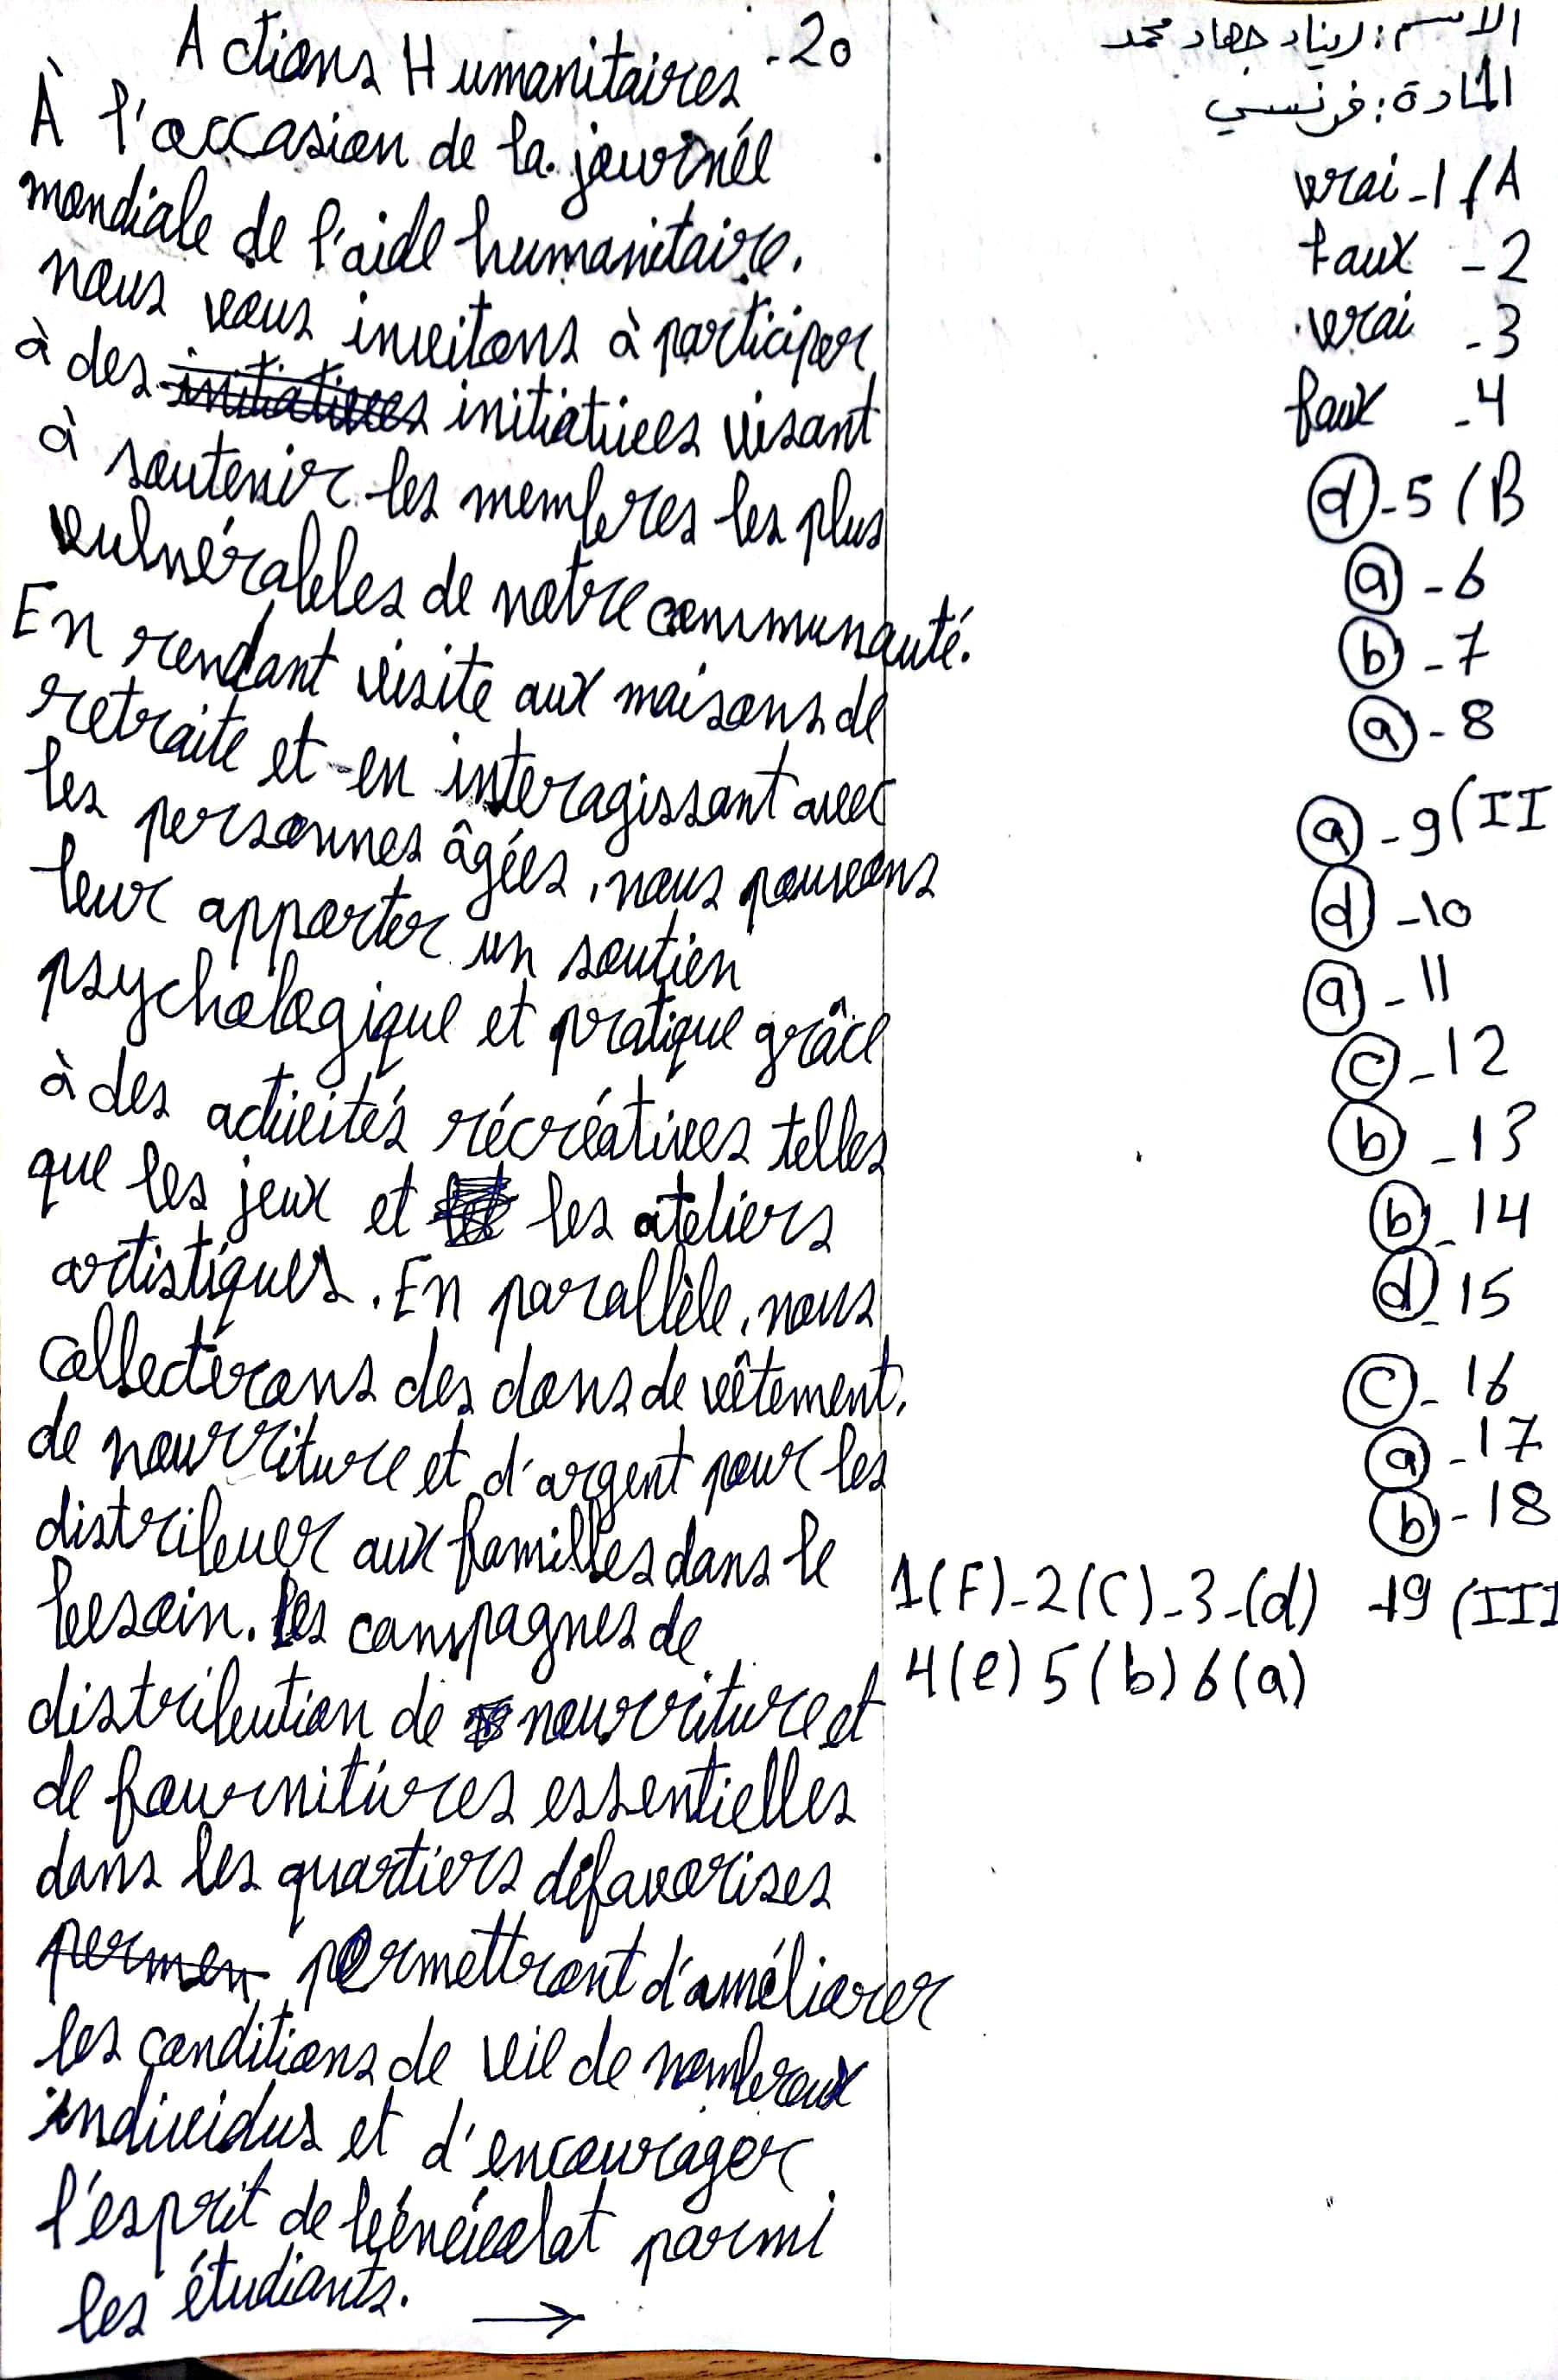 الاسم: ريناد جهاد محمد
المادة: فرنسي
vrai -1 (A
faux -2
vrai -3
faux -4
d -5 (B
a -6
b -7
a -8
a -9 (II
d -10
a -11
c -12
b -13
b -14
d -15
c -16
a -17
b -18
1(F)-2(C)-3-(d) -19 (III
4(e) 5(b) 6(a)
Actions Humanitaires -20
À l'occasion de la journée
mondiale de l'aide humanitaire,
nous vous invitons à participer
à des initiatives initiatives visant
à soutenir les membres les plus
vulnérables de notre communauté.
En rendant visite aux maisons de
retraite et en interagissant avec
les personnes âgées, nous pouvons
leur apporter un soutien
psychologique et pratique grâce
à des activités récréatives telles
que les jeux et les ateliers
artistiques. En parallèle, nous
collecterons des dons de vêtement,
de nourriture et d'argent pour les
distribuer aux familles dans le
besoin. Les campagnes de
distribution de nourriture et
de fournitures essentielles
dans les quartiers défavorises
permen permettront d'améliorer
les conditions de vie de nombreux
individus et d'encourager
l'esprit de bénévolat parmi
les étudiants. →